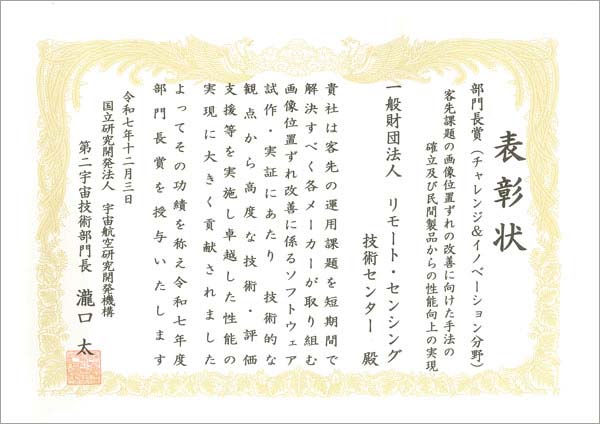 表彰状
部門長賞（チャレンジ&イノベーション分野）
客先課題の画像位置ずれの改善に向けた手法の
確立及び民間製品からの性能向上の実現
一般財団法人 リモート・センシング
技術センター 殿
貴社は客先の運用課題を短期間で
解決すべく各メーカーが取り組む
画像位置ずれ改善に係るソフトウェア
試作・実証にあたり 技術的な
観点から高度な技術・評価
支援等を実施し卓越した性能の
実現に大きく貢献されました
よってその功績を称え令和七年度
部門長賞を授与いたします
令和七年十二月三日
国立研究開発法人 宇宙航空研究開発機構
第二宇宙技術部門長 瀧口 太